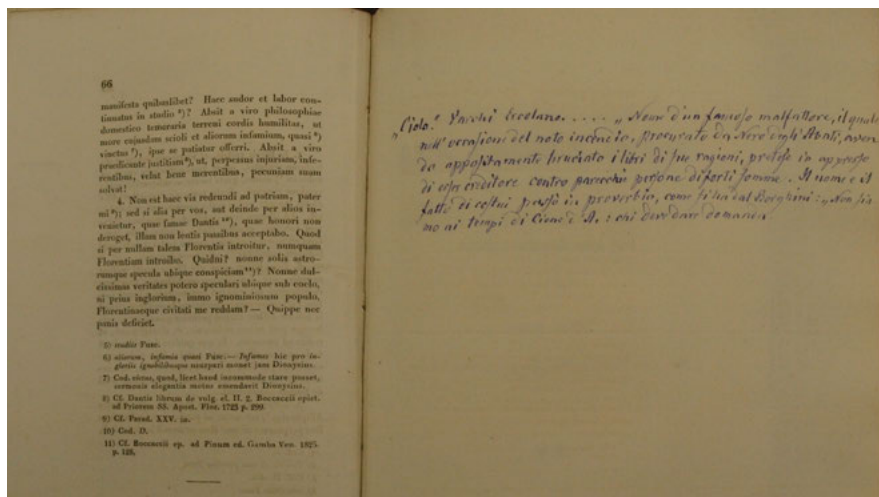 66
manifesta quibuslibet? Haec sudor et labor con-
tinuatus in studio ⁵)? Absit a viro philosophiae
domestico temeraria terreni cordis humilitas, ut
more cujusdam scioli et aliorum infamium, quasi ⁶)
vinctus ⁷), ipse se patiatur offerri. Absit a viro
praedicante justitiam ⁸), ut, perpessus injuriam, infe-
rentibus, velut bene merentibus, pecuniam suam
solvat!
4. Non est haec via redeundi ad patriam, pater
mi ⁹); sed si alia per vos, aut deinde per alios in-
venietur, quae famae Dantis ¹⁰), quae honori non
deroget, illam non lentis passibus acceptabo. Quod
si per nullam talem Florentia introitur, nunquam
Florentiam introibo. Quidni? nonne solis astro-
rumque specula ubique conspiciam ¹¹)? Nonne dul-
cissimas veritates potero speculari ubique sub coelo,
ni prius inglorium, immo ignominiosum populo,
Florentinaeque civitati me reddam? — Quippe nec
panis deficiet.
5) studiis Fusc.
6) aliorum, infamia quasi Fusc. — Infames hic pro in-
gloriis ignobilibusque usurpari monet jam Dionysius.
7) Cod. victus, quod, licet haud incommode stare posset,
sermonis elegantia motus emendavit Dionysius.
8) Cf. Dantis librum de vulg. el. II. 2. Boccaccii epist.
ad Priorem SS. Apost. Flor. 1723 p. 290.
9) Cf. Parad. XXV. in.
10) Cod. D.
11) Cf. Boccaccii ep. ad Pinum ed. Gamba Ven. 1825.
p. 128.
„Ciolo." Vecchi Ercolano. . . . . „Nome d'un famoso malfattore, il quale
nell' occasione del noto incendio, procurato da Nero degli Abati, aven
do appositamente bruciato i libri di sue ragioni, pretese in appresso
di esser creditore contro parecchie persone di forti somme. Il nome e il
fatto di costui passò in proverbio, come si ha dal Borghini: „Non sia
mo ai tempi di A.: chi deve dare domanda